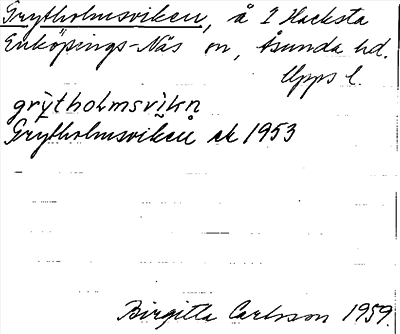 Grytholmsviken, å 2 Hacksta
Enköpings-Näs sn, Åsunda hd.
Upps l.
grỳthoLmsvìkn
Grytholmsviken ek 1953
Birgitta Carlsson 1959.